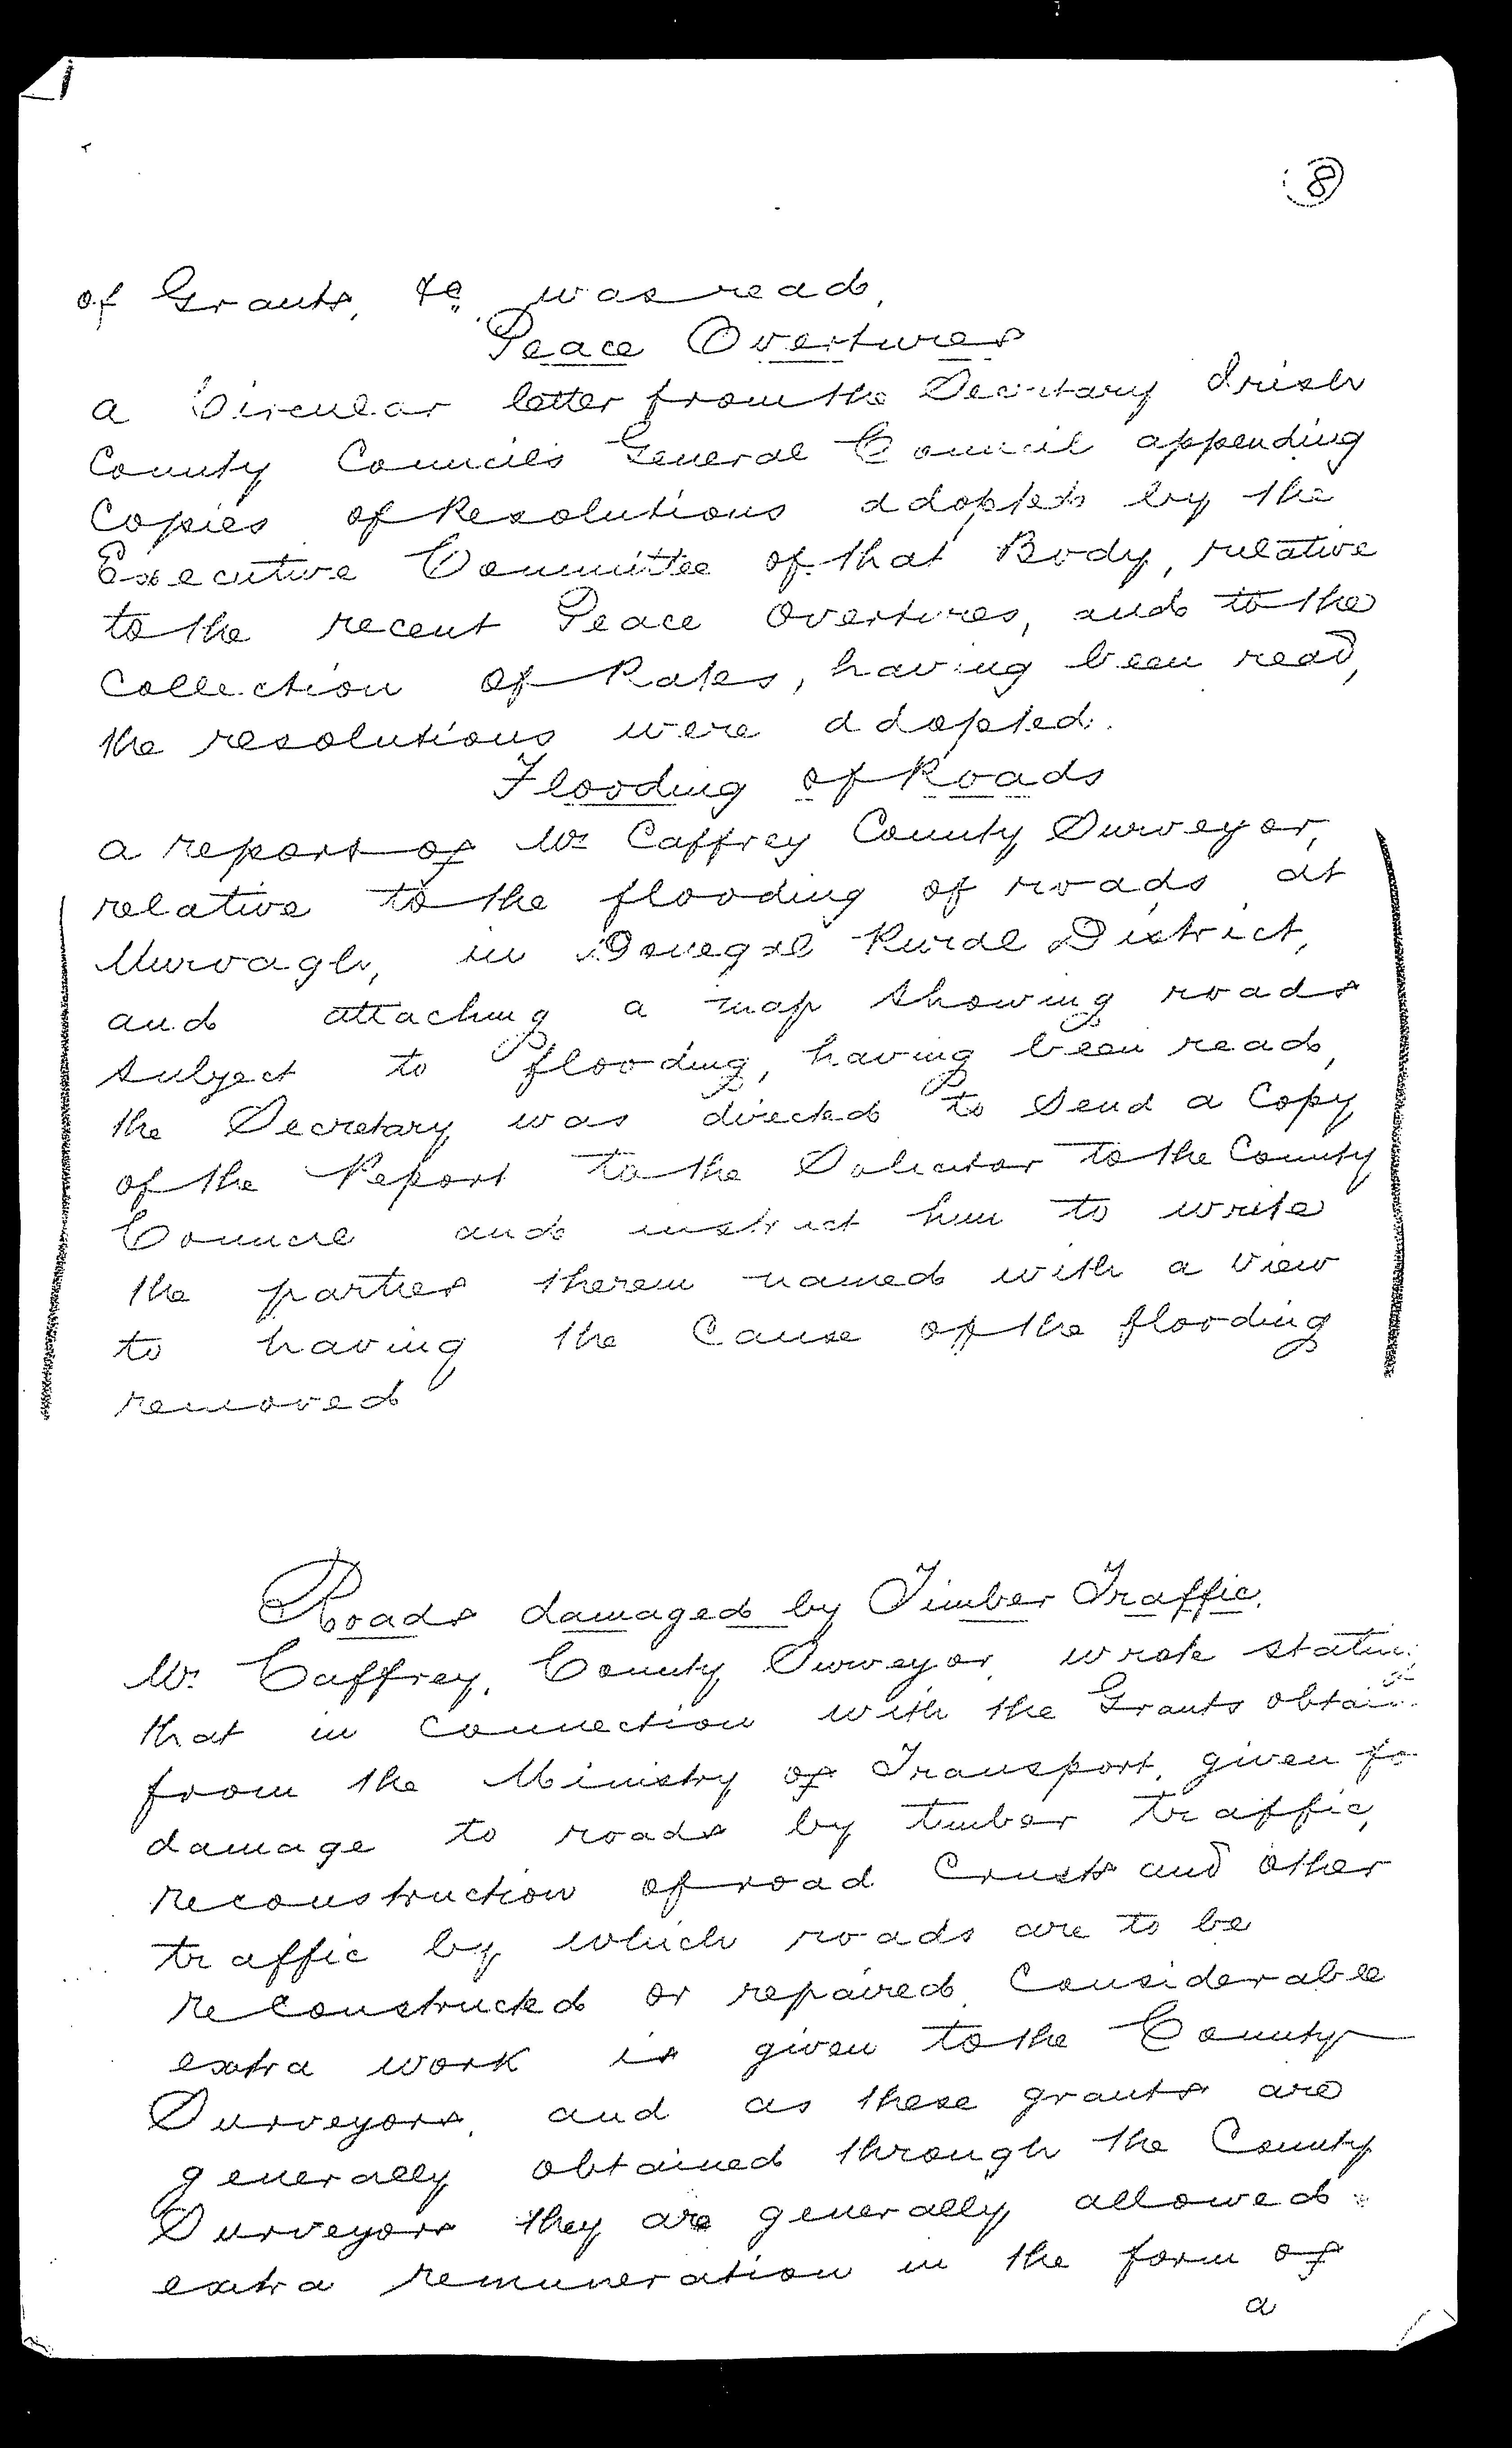 8
of Grants, &c. was read.
Peace Overtures
a Circular letter from the Secretary Irish
County Councils General Council appending
Copies of Resolutions adopted by the
Executive Committee of that Body, relative
to the recent Peace Overtures, and to the
Collection of Rates, having been read,
the resolutions were adopted.
Flooding of Roads
a report of Mr Caffrey County Surveyor,
relative to the flooding of roads at
Murvagh, in Donegal Rural District,
and attaching a map showing roads
subject to flooding, having been read,
the Secretary was directed to send a Copy
of the Report to the Solicitor to the County
Council and instruct him to write
the parties therein named with a view
to having the Cause of the flooding
removed
Roads damaged by Timber Traffic.
Mr. Caffrey, County Surveyor, wrote stating
that in connection with the Grants obtained
from the Ministry of Transport, given fo
damage to roads by timber traffic,
reconstruction of road Crusts and other
traffic by which roads are to be
reconstructed or repaired, Considerable
extra work is given to the County
Surveyors, and as these grants are
generally obtained through the County
Surveyors they are generally allowed
extra remuneration in the form of
a